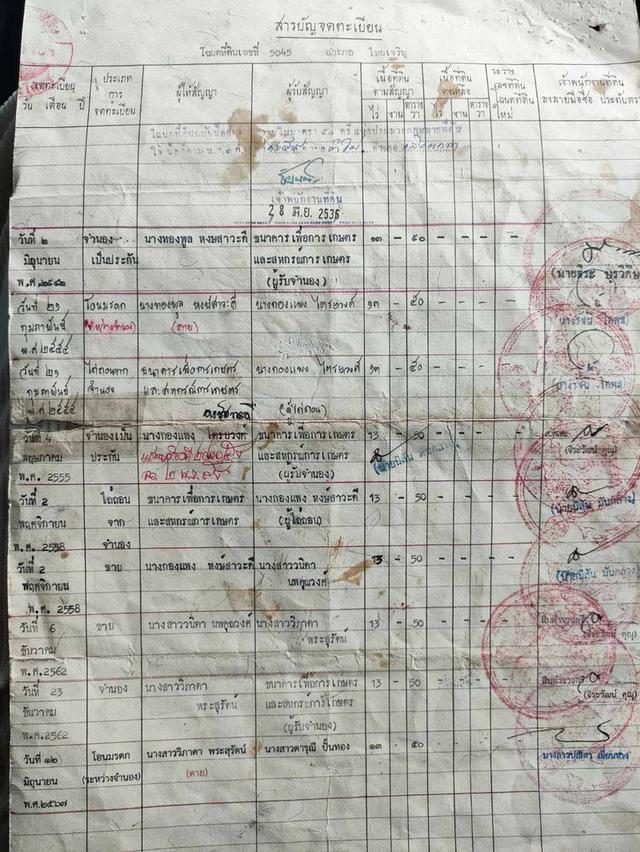 สารบัญจดทะเบียน
โฉนดที่ดินเลขที่ 5045 อำเภอ ไทยเจริญ
จดทะเบียน วัน เดือน ปี
ประเภทการจดทะเบียน
ผู้ให้สัญญา
ผู้รับสัญญา
เนื้อที่ดินตามสัญญา ไร่ งาน ตารางวา
เนื้อที่ดินคงเหลือ ไร่ งาน ตารางวา
ระวาง เลขที่ดิน โฉนดที่ดินใหม่
เจ้าพนักงานที่ดิน ลงลายมือชื่อ ประทับตรา
เจ้าพนักงานที่ดิน
28 มิ.ย. 2536
วันที่ ๒ จำนอง นางทองพูล หงษ์สาวะดี ธนาคารเพื่อการเกษตร ๑๓ - ๕๐ - - -
มิถุนายน เป็นประกัน และสหกรณ์การเกษตร
พ.ศ. ๒๕๔๒ (ผู้รับจำนอง)
วันที่ ๒๑ โอนมรดก นางทองพูล หงษ์สาวะดี นางกองแพง ไตรยวงศ์ ๑๓ - ๕๐ - - -
กุมภาพันธ์ (ระหว่างจำนอง) (ตาย)
พ.ศ. ๒๕๕๕
วันที่ ๒๑ ไถ่ถอนจาก ธนาคารเพื่อการเกษตร นางกองแพง ไตรยวงศ์ ๑๓ - ๕๐ - - -
กุมภาพันธ์ จำนอง และสหกรณ์การเกษตร
พ.ศ. ๒๕๕๕ (ผู้ไถ่ถอน)
วันที่ 4 จำนองเป็น นางกองแพง ไตรยวงศ์ ธนาคารเพื่อการเกษตร 13 - 50
พฤษภาคม ประกัน และสหกรณ์การเกษตร
พ.ศ. 2555 (ผู้รับจำนอง)
(จิระวัฒน์ คุณ)
วันที่ 2 ไถ่ถอน ธนาคารเพื่อการเกษตร นางกองแพง หงษ์สาวะดี 13 - 50 - - -
พฤศจิกายน จาก และสหกรณ์การเกษตร (ผู้ไถ่ถอน)
พ.ศ. 2558 จำนอง
วันที่ 2 ขาย นางกองแพง หงษ์สาวะดี นางสาววนิดา 13 - 50 - - -
พฤศจิกายน นพคุณวงค์
พ.ศ. 2558
วันที่ 6 ขาย นางสาววนิดา นพคุณวงค์ นางสาววิภาดา 13 - 50 - - -
ธันวาคม พระสุรัตน์ (จิระวัฒน์ คุณ)
พ.ศ. 2562
วันที่ 23 จำนอง นางสาววิภาดา ธนาคารเพื่อการเกษตร 13 - 50 - - -
ธันวาคม พระสุรัตน์ และสหกรณ์การเกษตร (จิระวัฒน์ คุณ)
พ.ศ. 2562 (ผู้รับจำนอง)
วันที่ ๑๒ โอนมรดก นางสาววิภาดา พระสุรัตน์ นางสาวดารุณี ปั้นทอง ๑๓ - ๕๐ - - -
มิถุนายน (ระหว่างจำนอง) (ตาย)
พ.ศ. ๒๕๖๗